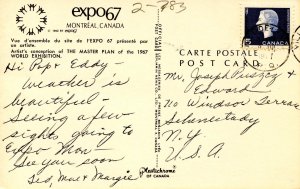 2-983
expo67
MONTRÉAL, CANADA
Vue d'ensemble du site de l'EXPO 67 présenté par un artiste.
Artist's conception of THE MASTER PLAN of the 1967 WORLD EXHIBITION.
5
CANADA
CARTE POSTALE
POST CARD
Hi Pop & Eddy –
Weather is
beautiful –
Seeing a few
sights going to
Expo Mon –
See you soon
Ted, Mae & Margie
Mr. Joseph
Edward
Windsor Terrace
Schenectady
N.Y.
U.S.A.
Plastichrome
OF CANADA